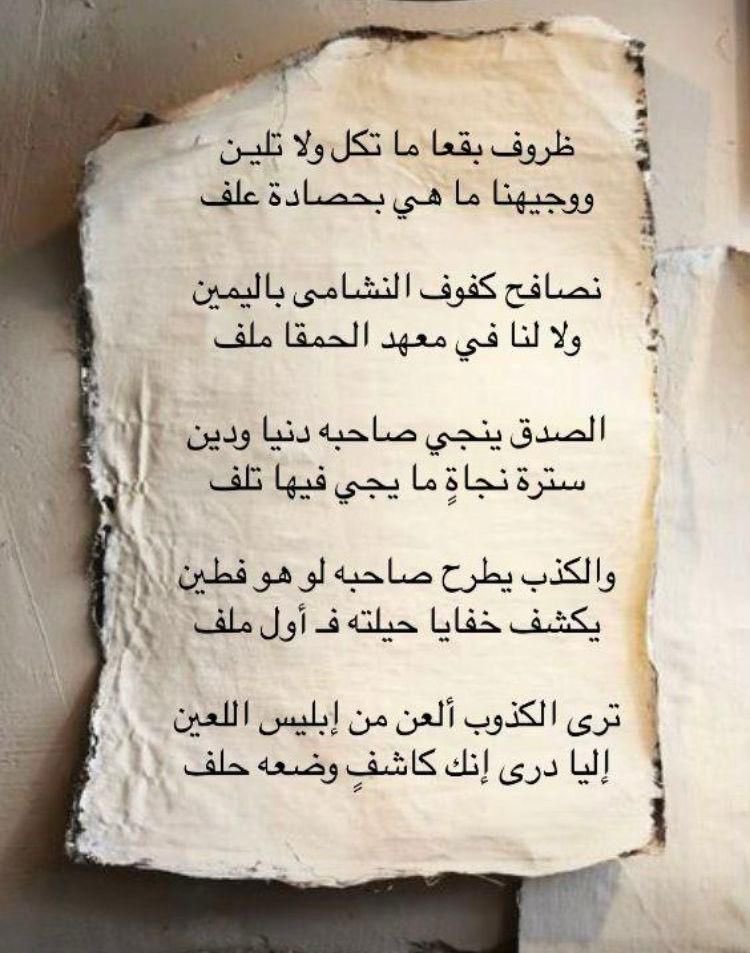 ظروف بقعا ما تكل ولا تلين
ووجيهنا ما هي بحصادة علف
نصافح كفوف النشامى باليمين
ولا لنا في معهد الحمقا ملف
الصدق ينجي صاحبه دنيا ودين
سترة نجاةٍ ما يجي فيها تلف
والكذب يطرح صاحبه لو هو فطين
يكشف خفايا حيلته فـ أول ملف
ترى الكذوب ألعن من إبليس اللعين
إليا درى إنك كاشفٍ وضعه حلف